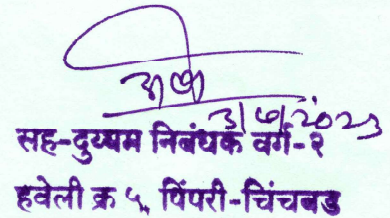 3/७/2023
सह-दुय्यम निबंधक वर्ग-२
हवेली क्र ५, पिंपरी-चिंचवड